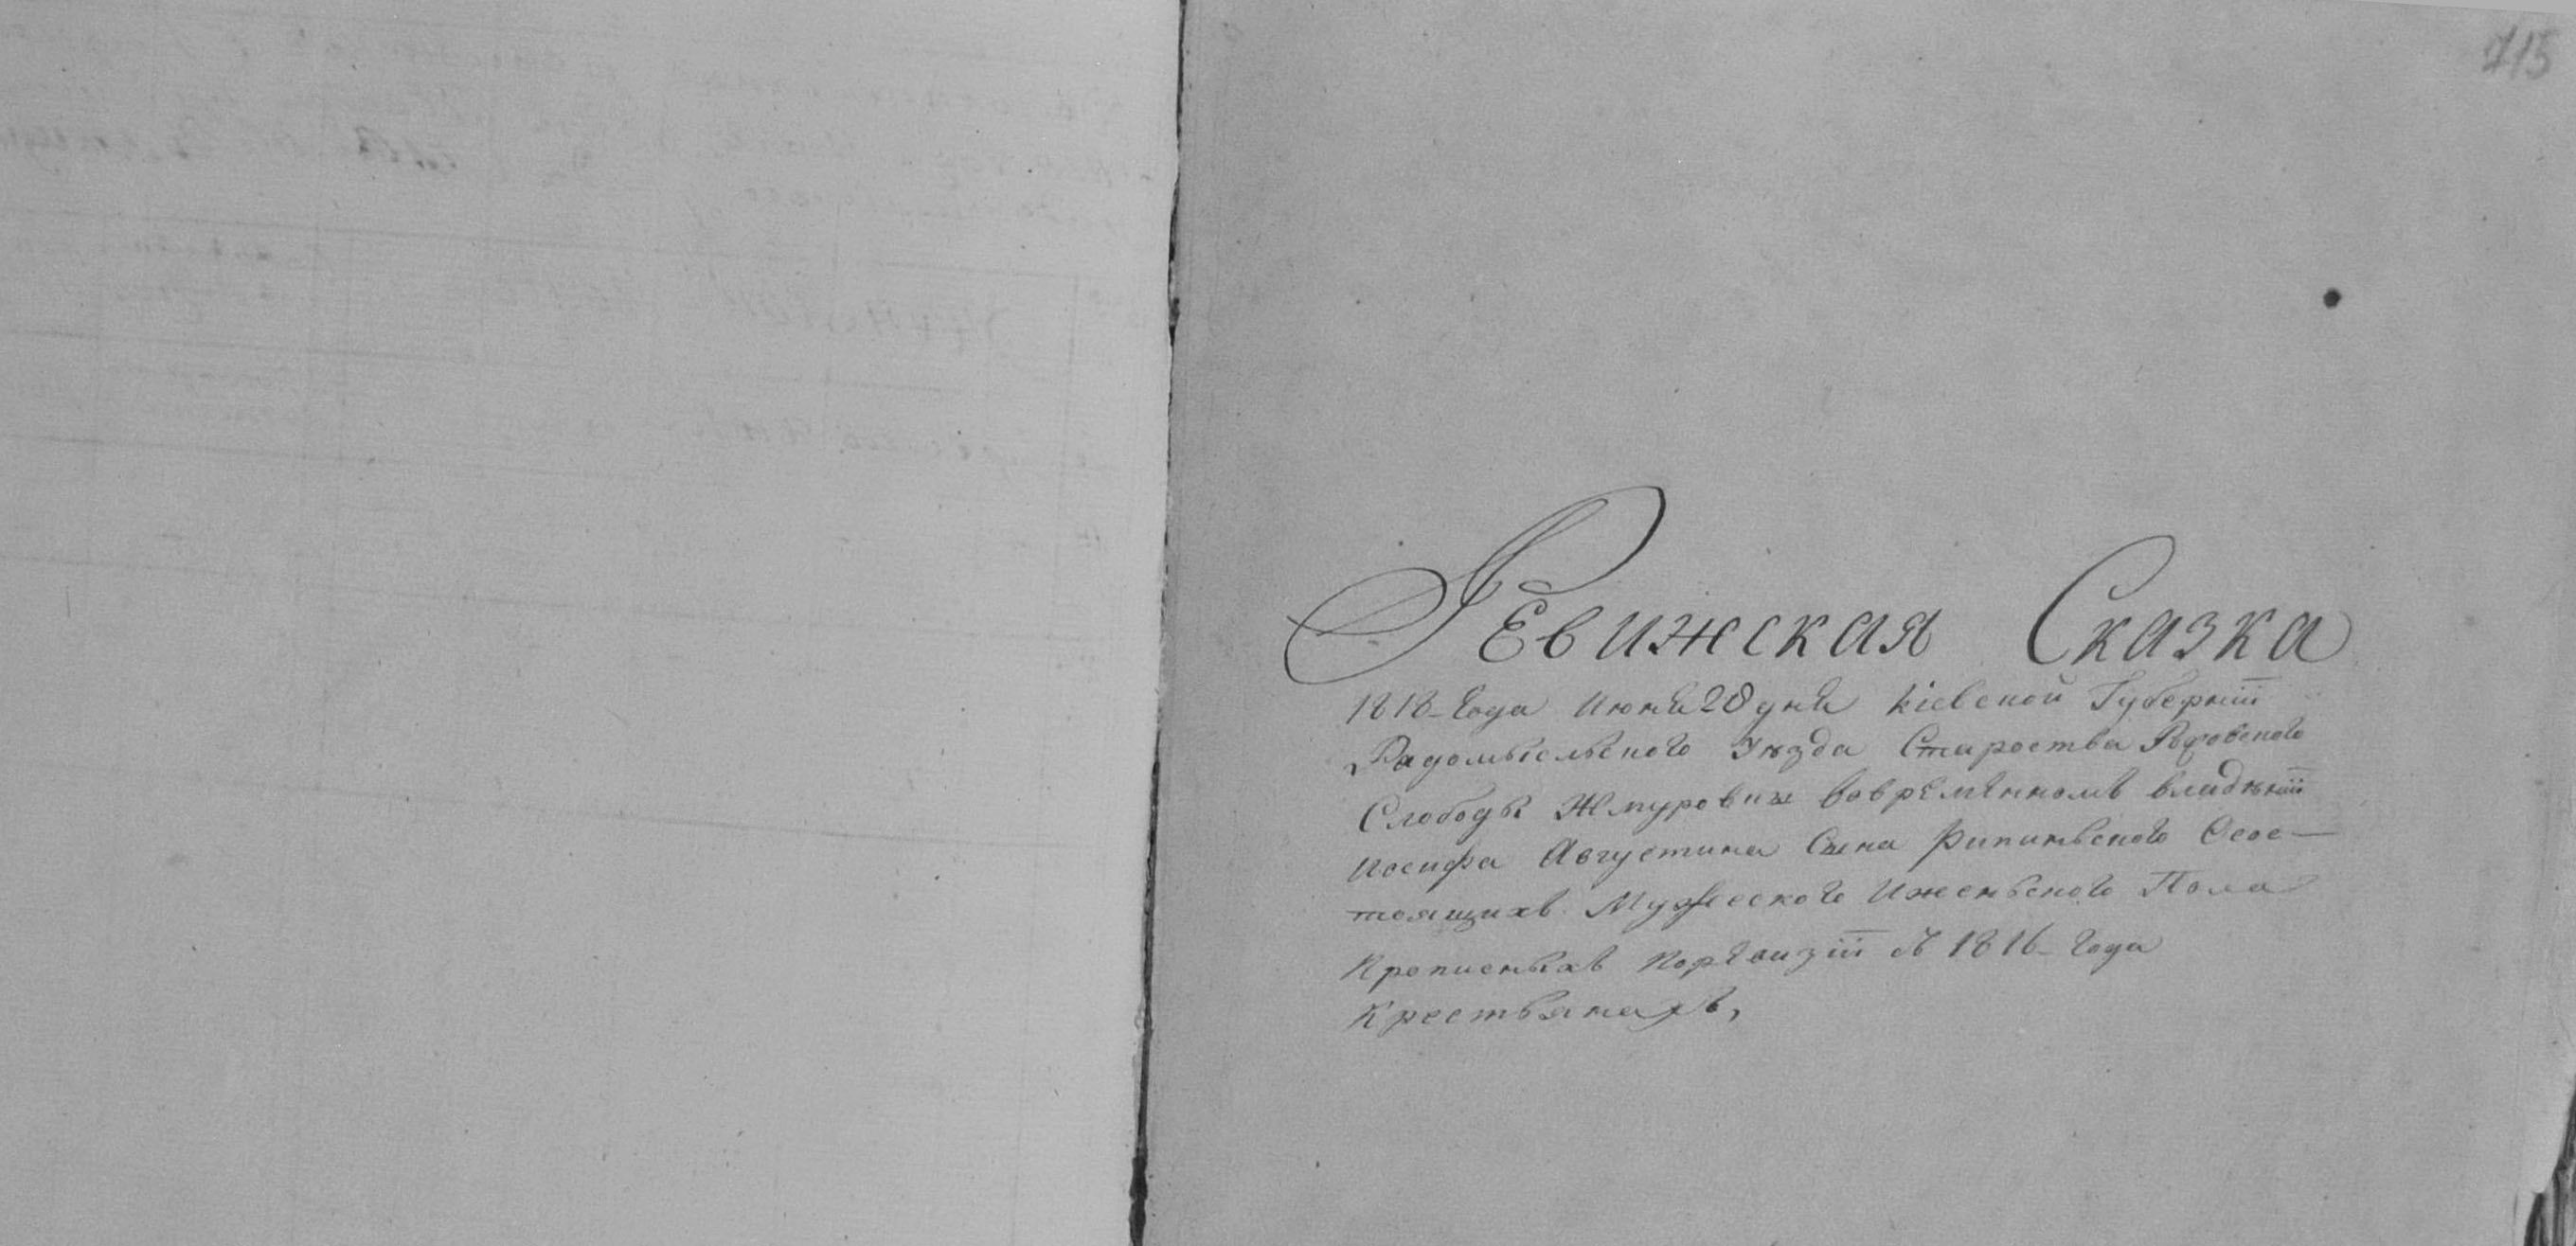 715
Ревижская Сказка
1818 Года Июня 28 дня Кіевской Губерніи
Радомысльского Уѣзда Староства
Слободы Жмуровки вовременномъ владѣніи
Иосифа Августина Сына Рипинского Осос-
тоящихъ Мужеского Иженьского Пола
Прописныхъ Поревизіи 1816 Года
Крестьянахъ,